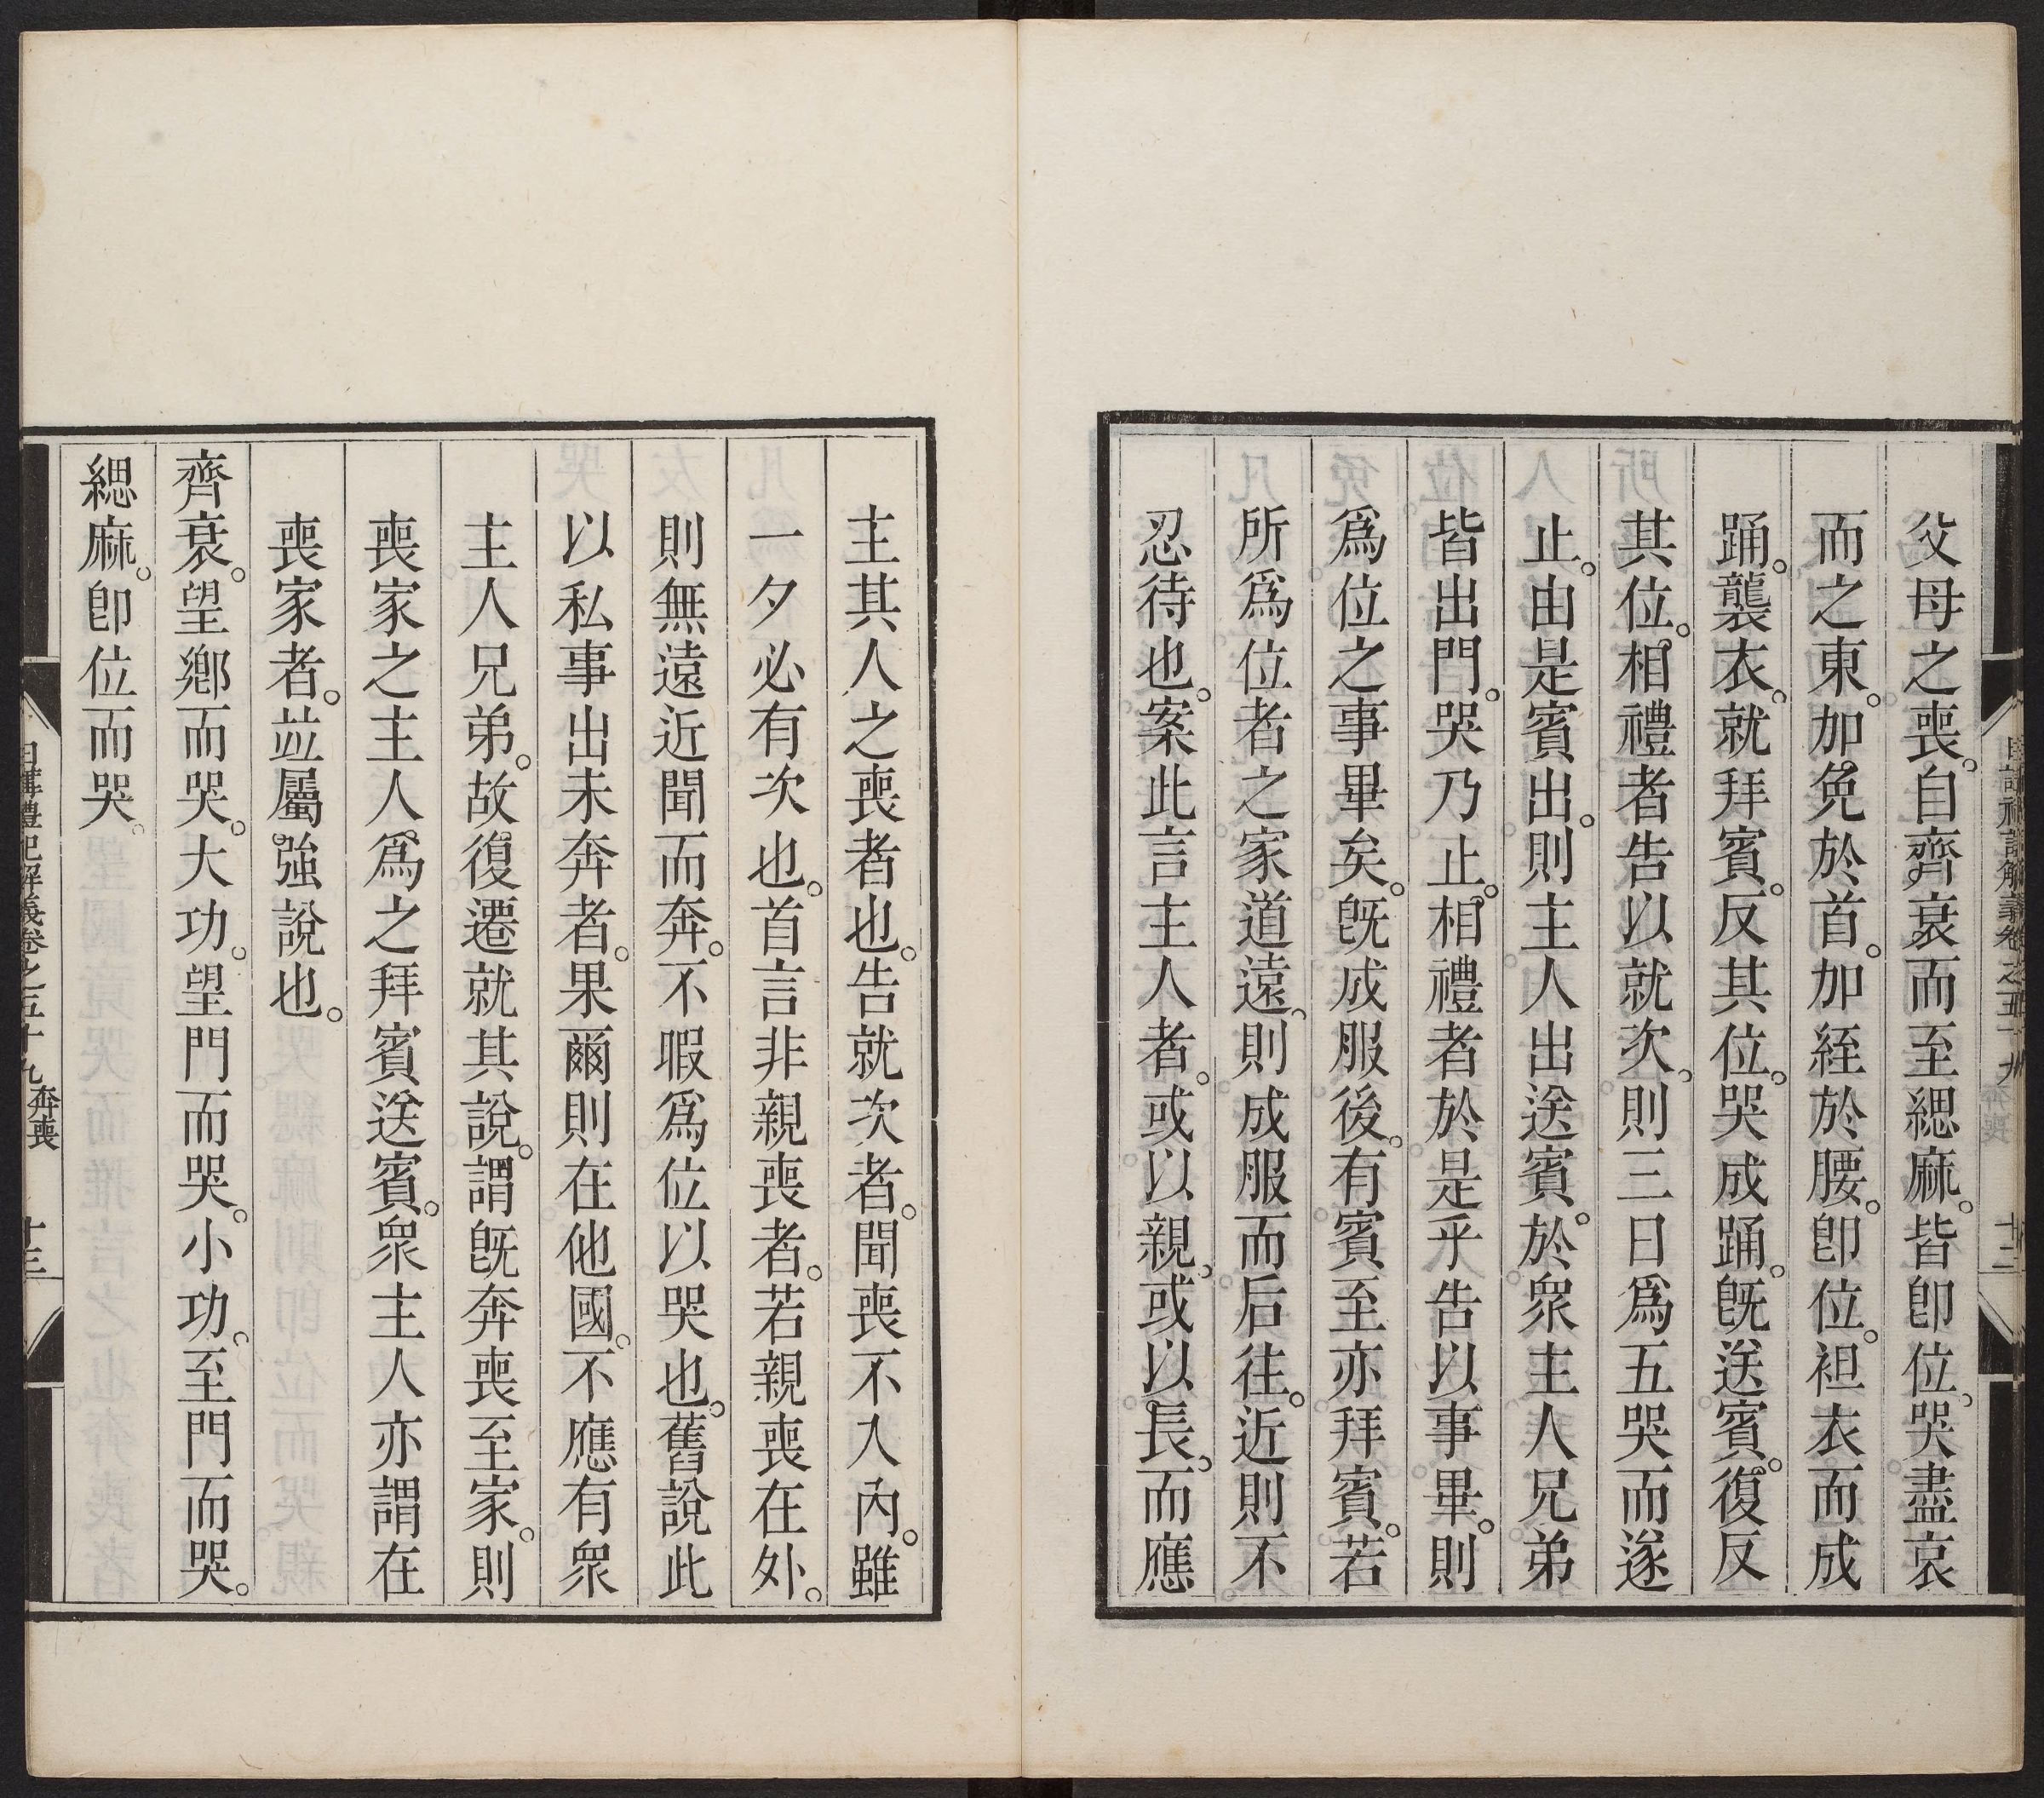 父母之喪。自齊衰而至緦麻。皆卽位。哭盡哀
而之東。加免於首。加絰於腰。卽位。袒衣而成
踊。襲衣。就拜賓。反其位。哭成踊。旣送賓。復反
其位。相禮者告以就次。則三日爲五哭而遂
止。由是賓出。則主人出送賓。於衆主人兄弟
皆出門。哭乃止。相禮者於是乎告以事畢。則
爲位之事畢矣。旣成服後。有賓至亦拜賓。若
所爲位者之家道遠。則成服而后往。近則不
忍待也。案此言主人者。或以親。或以長。而應
主其人之喪者也。告就次者。聞喪不入內。雖
一夕必有次也。首言非親喪者。若親喪在外。
則無遠近聞而奔。不暇爲位以哭也。舊說此
以私事出未奔者。果爾則在他國。不應有衆
主人兄弟。故復遷就其說。謂旣奔喪至家。則
喪家之主人爲之拜賓送賓。衆主人亦謂在
喪家者。竝屬强說也。
齊衰。望鄉而哭。大功。望門而哭。小功。至門而哭。
緦麻。卽位而哭。
日講禮記解義卷之五十九 奔喪 十三